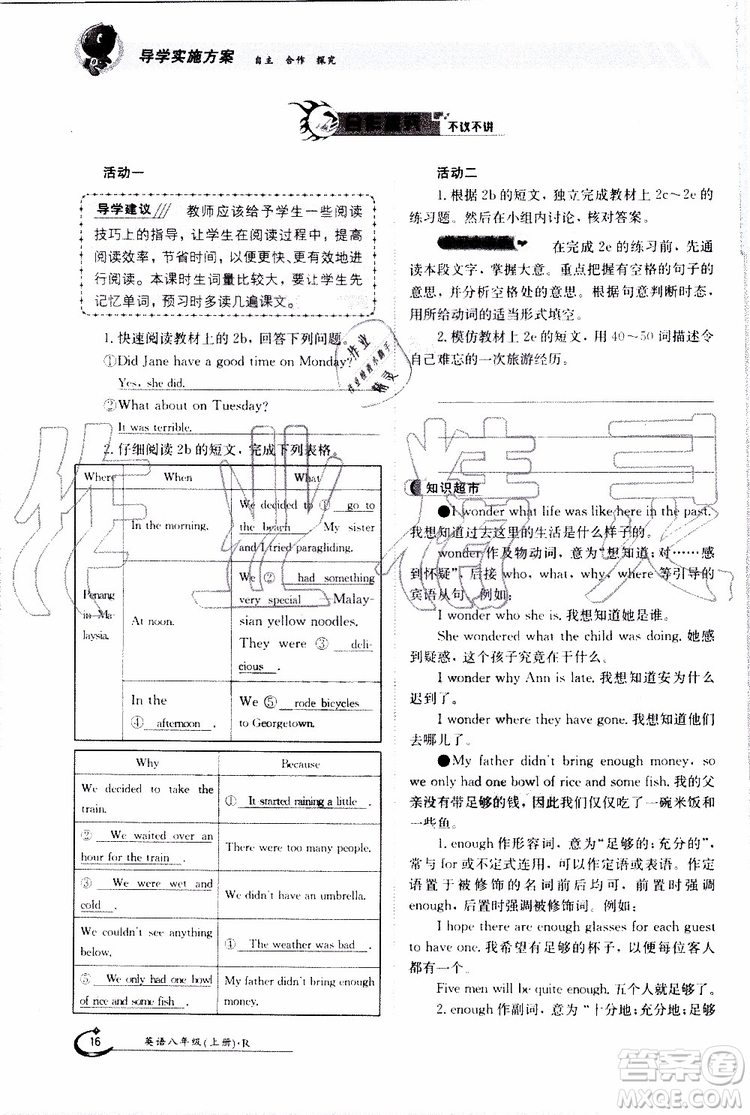 导学实施方案 自主 合作 探究
不议不讲
活动一
导学建议 教师应该给予学生一些阅读
技巧上的指导，让学生在阅读过程中，提高
阅读效率，节省时间，以便更快、更有效地进
行阅读。本课时生词量比较大，要让学生先
记忆单词，预习时多读几遍课文。
1. 快速阅读教材上的2b，回答下列问题。
①Did Jane have a good time on Monday?
Yes, she did.
②What about on Tuesday?
It was terrible.
2. 仔细阅读2b的短文，完成下列表格。
Where When What
Penang
in Ma-
laysia.
In the morning.
We decided to ① go to
the beach . My sister
and I tried paragliding.
At noon.
We ② had something
very special —Malay-
sian yellow noodles.
They were ③ deli-
cious .
In the
④ afternoon .
We ⑤ rode bicycles
to Georgetown.
Why Because
We decided to take the
train.
① It started raining a little .
② We waited over an
hour for the train .
There were too many people.
③ We were wet and
cold .
We didn't have an umbrella.
We didn't see anything
below.
④ The weather was bad .
⑤ We only had one bowl
of rice and some fish .
My father didn't bring enough
money.
活动二
1. 根据2b的短文，独立完成教材上2c～2e的
练习题。然后在小组内讨论，核对答案。
在完成2e的练习前，先通
读本段文字，掌握大意。重点把握有空格的句子的
意思，并分析空格处的意思。根据句意判断时态，
用所给动词的适当形式填空。
2. 模仿教材上2e的短文，用40～50词描述令
自己难忘的一次旅游经历。
知识超市
●I wonder what life was like here in the past.
我想知道过去这里的生活是什么样子的。
wonder作及物动词，意为“想知道；对……感
到怀疑”，后接who, what, why, where等引导的
宾语从句，例如：
I wonder who she is. 我想知道她是谁。
She wondered what the child was doing. 她感
到疑惑，这个孩子究竟在干什么。
I wonder why Ann is late. 我想知道安为什么
迟到了。
I wonder where they have gone. 我想知道他们
去哪儿了。
●My father didn't bring enough money, so
we only had one bowl of rice and some fish. 我的父
亲没有带足够的钱，因此我们仅仅吃了一碗米饭和
一些鱼。
1. enough作形容词，意为“足够的；充分的”，
常与for或不定式连用，可以作定语或表语。作定
语置于被修饰的名词前后均可，前置时强调
enough，后置时强调被修饰词。例如：
I hope there are enough glasses for each guest
to have one. 我希望有足够的杯子，以便每位客人
都有一个。
Five men will be quite enough. 五个人就够了。
2. enough作副词，意为“十分地；充分地；足
16 英语八年级(上册)·R
作业精灵
答案圈
MXQE.COM